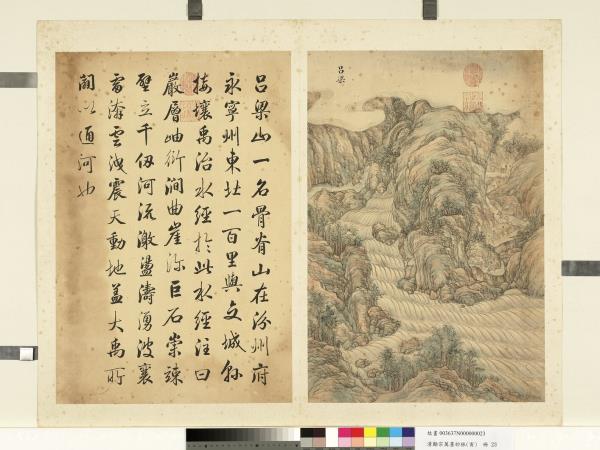 呂梁
呂梁山一名骨脊山在汾州府
永寧州東北一百里與交城縣
接壤禹治水經於此水經注曰
巖層岫衍澗曲崖深巨石崇竦
壁立千仞河流激盪濤湧波襄
雷渀雲洩震天動地蓋大禹所
闢以通河也
故畫 003637N000000023
冊 23